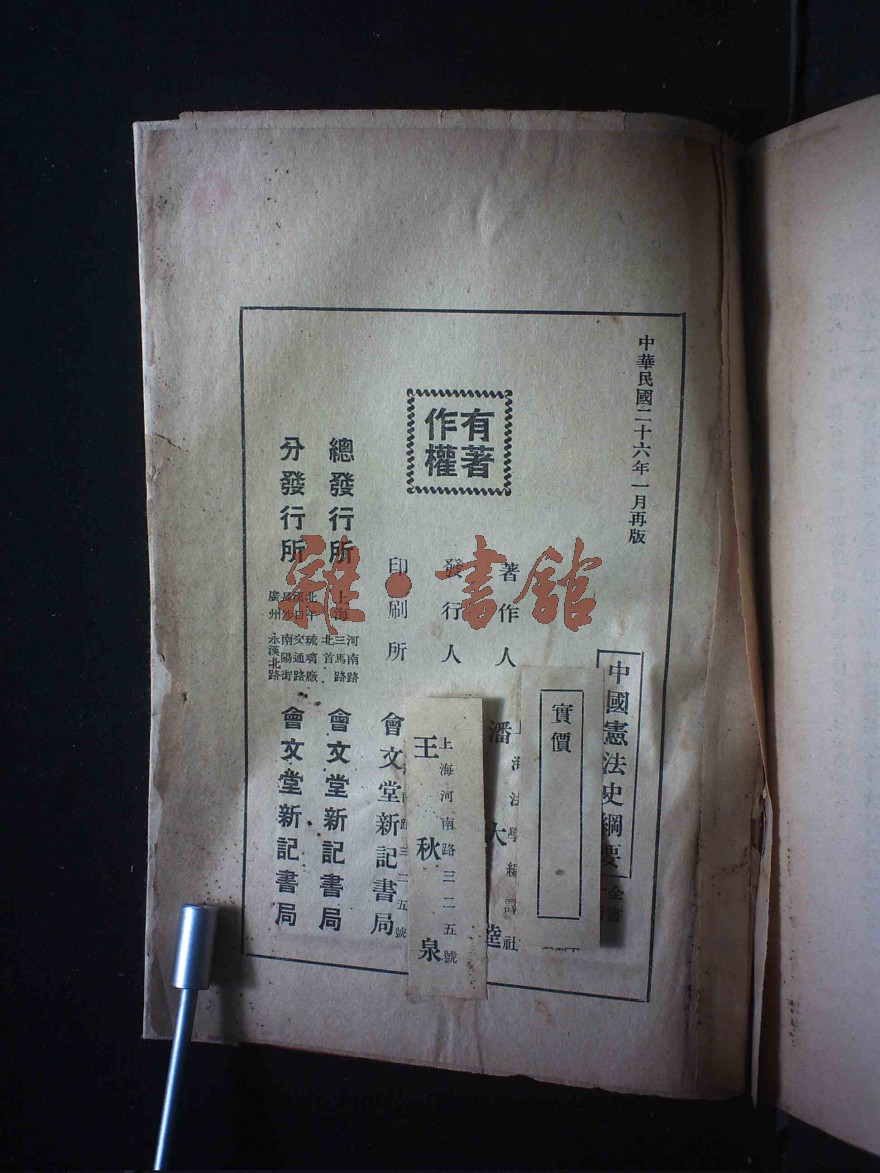 中華民國二十六年一月再版
中國憲法史綱要
全書
實價
著作人
潘大逵
上海法學編譯社
有著
作權
發行人
王秋泉
上海河南路三二五號
印刷所
會文堂新記書局
路三二五號
總發行所
上海
河南路
三馬路
北首
會文堂新記書局
分發行所
北平 琉璃廠
漢口 交通路
長沙 南陽街
廣州 永漢北路
會文堂新記書局
雜·書館